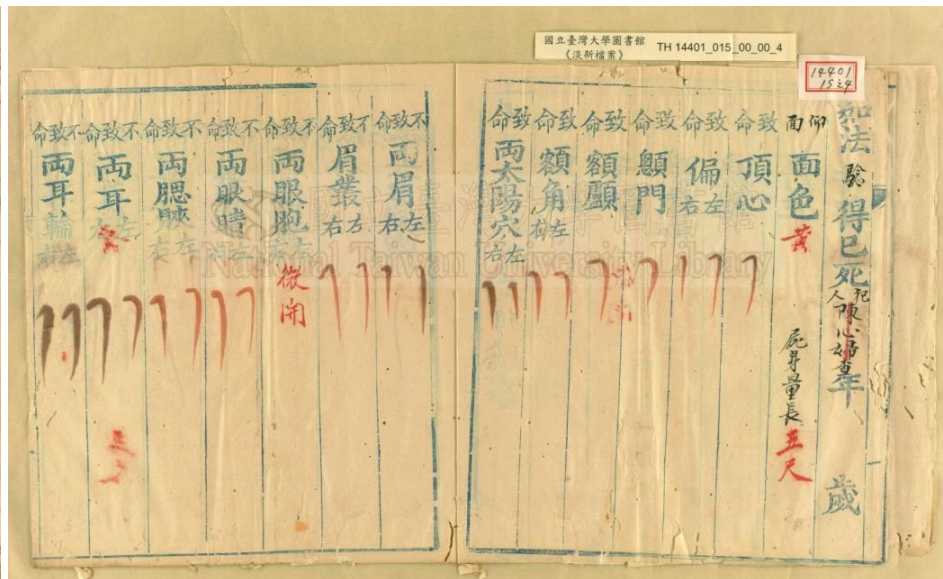 國立臺灣大學圖書館
《淡新檔案》
TH 14401_015_00_00_4
14401
15:4
如法驗得已死犯人陳心婦年 歲
仰面
面色黃 屍身量長五尺
致命頂心
致命偏左右
致命顖門
致命額顱
致命額角左右
致命兩太陽穴左右
不致命兩眉左右
不致命眉叢左右
不致命兩眼胞左右 微開
不致命兩眼睛左右
不致命兩腮脥左右
不致命兩耳左右
不致命兩耳輪左右
National Taiwan University Library